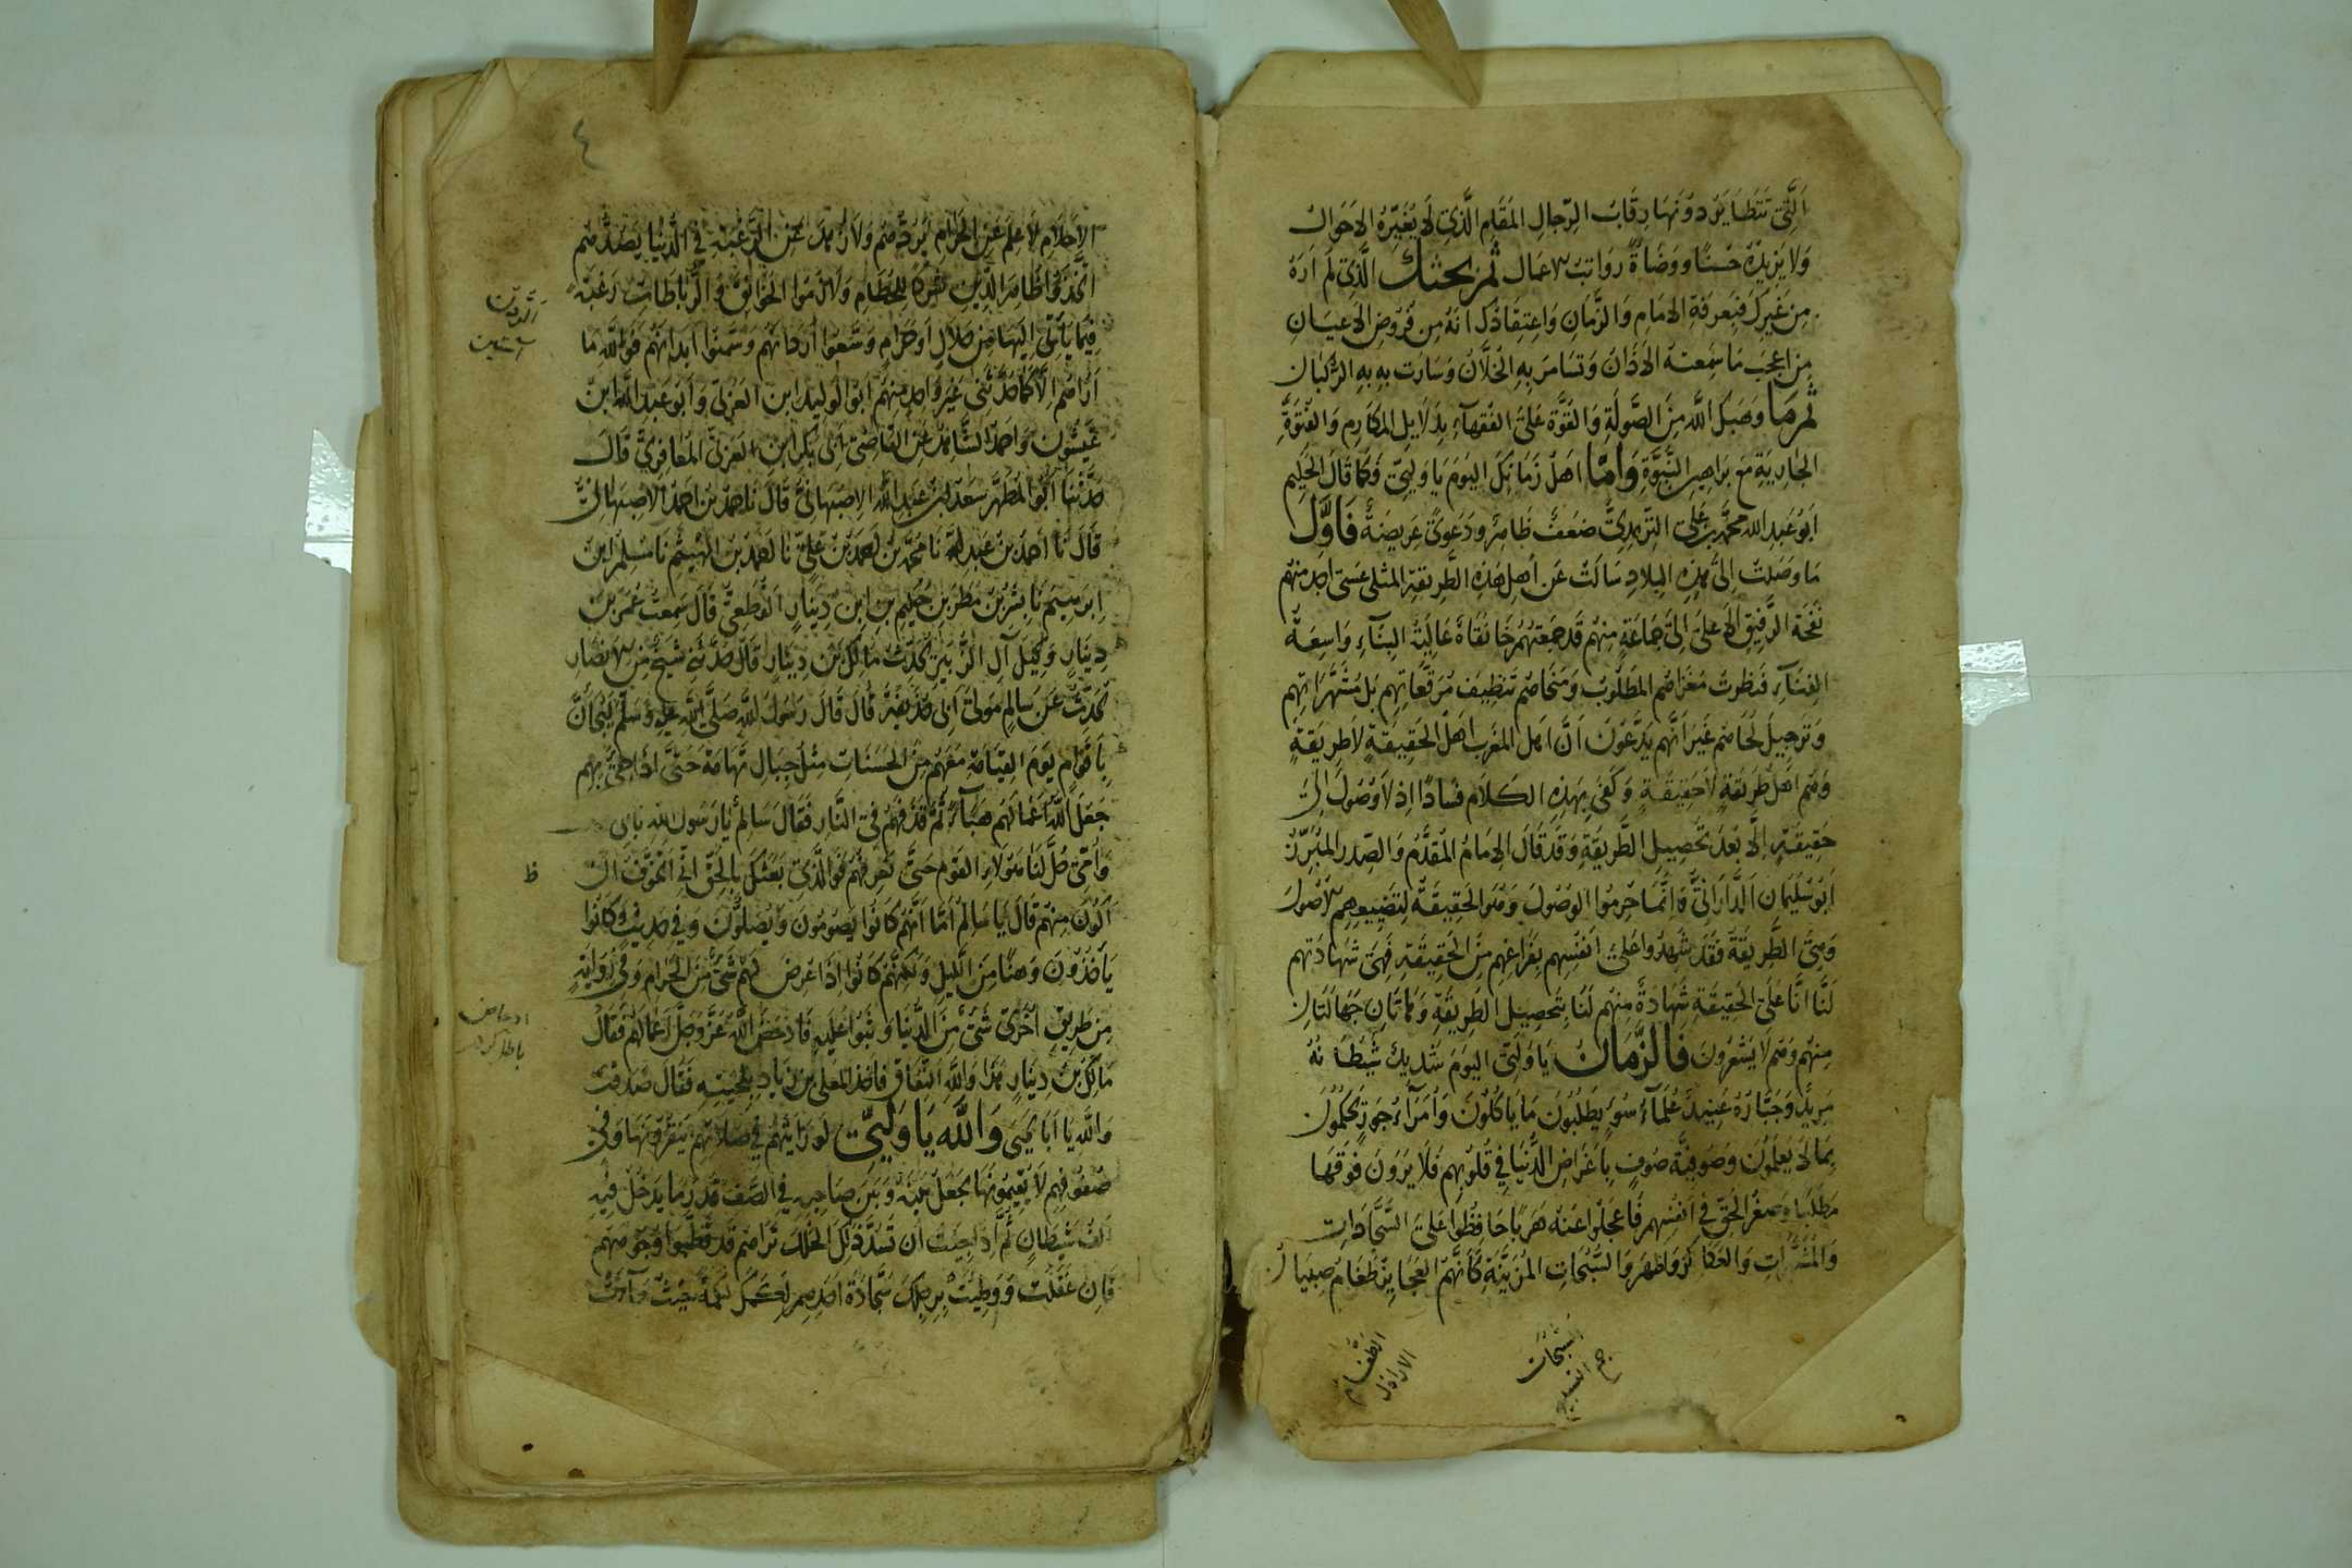 الَّتِي تَتَطَايَرُ دُونَهَا رِقَابُ الرِّجالِ المَقَامِ الَّذِي لَا يُغَيِّرُهُ الأَحْوَالُ
وَلَا يَزِيدُهُ حُسْنًا وَوَضَاةً رَوَاتِبُ الاعمال ثُمَّ بحثك الَّذِي لَم ارَهُ
مِن غَيرِكَ فَبِمَعرِفَةِ الإِمَامِ وَالزَّمَانِ وَاعتِقَادُكَ انَّهُ مِن فُرُوضِ الأَعيَانِ
مِن اعجَبِ مَا سَمِعَتهُ الأَذَانُ وَتَسَامَرَ بِهِ الخُلَّانُ وَسَارَت بِهِ بِهِ الرُّكبَان
ثُمَّ مَا وَهَبَكَ اللَّه مِنَ الصَّولَةِ وَالقُوَّةِ عَلَى الفُقَهآءِ بِدَلَايِلِ المَكَارِمِ وَالفُتُوَّةِ
الجَارِيَةِ مَعَ بَرَاهِينِ النُّبُوَّةِ وَأَمَّا اهَلُ زَمَانِكَ اليَومَ يَا وَلِيِّي فَكَمَا قَالَ الحَكِيم
ابُو عَبدِ الله مُحَمَّد بن عَلِي التِّرمِذِيّ ضَعفٌ ظَاهِرٌ وَدَعوَى عَرِيضَةٌ فَأَوَّلُ
مَا وَصَلتُ الى هَذِهِ البِلَادِ سَالتُ عَن أهلِ هَذِهِ الطَّرِيقَةِ المُثلَى عَسَى اجِد مِنهُم
نَفحَةَ الرَّفِيقِ الأَعلَى الى جَمَاعَةٍ مِنهُم قَد جَمَعَتهُم خَانقَاةٌ عَالِيَةُ البِنَآءِ وَاسِعَةُ
الفِنَآءِ فَنَظَرتُ مَغزَاهُمُ المَطلُوبَ وَمَنحَاهُم تَنظِيفَ مُرَقَّعَاتِهِم بَل مُشَهَّرَاتِهِم
وَتَرجِيلَ لُحَاهُم غَيرَ انَّهُم يَدَّعُونَ انَّ اهَلَ المَغرِبِ اهَلُ الحَقِيقَةِ لَا طَرِيقَةٍ
وَهُم اهَلُ طَرِيقَةٍ لَا حَقِيقَةٍ وَكَفَى بِهَذِهِ الكَلَامِ فَسَادًا اِذ لَا وُصُولَ الى
حَقِيقَةٍ الَّا بَعدَ تَحصِيلِ الطَّرِيقَةِ وَقَد قَالَ الإِمَامُ المُقَدَّمُ وَالصَّدرُ المُبَرَّزُ
ابُو سُلَيمَان الدَّارَانِيُّ وَانَّمَا حُرِمُوا الوُصُولَ وَهُوَ الحَقِيقَةُ لِتَضيِيعِهِمُ الأُصُولَ
وَهِيَ الطَّرِيقَةُ فَقَد شَهِدُوا عَلَى انفُسِهِم بِفَرَاغِهِم مِنَ الحَقِيقَةِ فَهِيَ شَهَادَتُهُم
لَنَا انَّا عَلَى الحَقِيقَةِ شَهَادَةٌ مِنهُم لَنَا بِتَحصِيلِ الطَّرِيقَةِ وَهَاتَانِ جَهَالَتَانِ
مِنهُم وَهُم لَا يَشعُرُونَ فَالزَّمَانُ يَا وَلِيِّي اليَومَ شَدِيدٌ شَيطَانُهُ
مَرِيدٌ وَجَبَّارُهُ عَنِيدٌ عُلَمَآءُ سُوءٍ يَطلُبُونَ مَا يَاكُلُونَ وَأُمَرَآءُ جَورٍ يَحكُمُون
بِمَا لَا يَعلَمُونَ وَصُوفِيَّةُ صُوفٍ بِاعرَاضِ الدُّنيَا فِي قُلُوبِهِم فَلَا يَرَونَ فَوقَهَا
مَطلَبًا وَصَغُرَ الحَقُّ فِي انفُسِهِم فَاعجَلُوا عَنهُ هَرَبًا حَافَظُوا عَلَى السَّجَّادَاتِ
وَالمُشَهَّرَاتِ وَالعَكَاكِزِ وَاظهَرُوا السُّبُحَاتِ المُزَيَّنَةِ كَأَنَّهُمُ العَجَايِزُ طَغَامٌ صِبيَانُ
الطَّغَامُ
الاراذل
السُّبُحَات
جمع السبحة
٤
الأَحلَامِ لَا عِلمَ عَنِ الحَرَامِ يَرُدُّهُم وَلَا زُهدَ عَنِ الرَّغبَةِ فِي الدُّنيَا يَصُدُّهُم
اتَّخَذُوا ظَاهِرَ الدِّينِ شَرَكًا لِلحُطَامِ وَلَازَمُوا الخَوَانِقَ وَالرِّبَاطَاتِ رَغبَةً
فِيمَا يَأتِي الَيهَا مِن حَلَالٍ اَو حَرَامٍ وَسَّعُوا أَردَانَهُم وَسَمَّنُوا ابدَانَهُم فَوَاللَّهِ مَا
أَرَاهُم الَّا كَمَا حَدَّثَنِي غَيرُ وَاحِدٍ مِنهُم ابُو الوَلِيدِ ابن العَرَبِي وَأَبُو عَبدِ اللَّه ابنُ
عَيشُونَ وَاحمَدُ الشَّاهِدُ عَنِ القَاضِي ابِي بَكرِ ابنِ العَرَبِيِّ المَعَافِرِيِّ قَالَ
حَدَّثَنَا ابُو المُطَهَّرِ سَعدُ بنُ عَبدِ اللَّهِ الاصبَهَانِيُّ قَالَ نَا حَمدُ بنُ احمَدَ الاصبَهَانِيُّ
قَالَ نَا أحمَدُ بنُ عَبدِ اللهِ نَا مُحَمَّدُ بنُ احمَدَ بنِ عَلِيٍّ نَا احمَدُ بنُ الهَيثَمِ نَا مُسلِمُ ابنُ
اِبرَهِيمَ نَا بِشرُ بنُ مَطَرِ بنِ حَكِيمِ بنِ ابنِ دِينَارٍ القُطَعِيُّ قَالَ سَمِعتُ عَمرَو بنَ
دِينَارٍ وَكِيلَ آلِ الزُّبَيرِ يُحَدِّثُ مَالِكَ بنَ دِينَارٍ قَالَ حَدَّثَنِي شَيخٌ مِنَ الانصَارِ
يُحَدِّثُ عَن سَالِمٍ مَولَى ابِي حُذَيفَةَ قَالَ قَالَ رَسُولُ اللَّهِ صَلَّى اللهُ عَلَيهِ وَسَلَّمَ لَيُجَاءُ
بِاقوَامٍ يَومَ القِيَامَةِ مَعَهُم مِنَ الحَسَنَاتِ مِثلُ جِبَالِ تِهَامَةَ حَتَّى اذَا جِئَ بِهِم
جَعَلَ اللَّهُ اعمَالَهُم هَبَآءً ثُمَّ قَذَفَهُم فِي النَّارِ فَقَالَ سَالِمٌ يَا رَسُولَ الله بِابِي
وَأُمِّي حُلَّ لَنَا هَؤُلَاءِ القَومِ حَتَّى نَعرِفَهُم فَوَالَّذِي بَعَثَكَ بِالحَقِّ انِّي اتَخَوَّفُ ان
أَكُونَ مِنهُم قَالَ يَا سَالِمُ أَمَّا انَّهُم كَانُوا يَصُومُونَ وَيُصَلُّونَ وَفِي حَدِيثٍ كَانُوا
يَأخُذُونَ وَهنًا مِنَ اللَّيلِ وَلَكِنَّهُم كَانُوا اِذَا عَرَضَ لَهُم شَيٌ مِنَ الحَرَامِ وَفِي رِوَايَةٍ
مِن طَرِيقٍ أخرَى شَيٌ مِنَ الدُّنيَا وَثَبُوا عَلَيهِ فَادحَضَ اللَّهُ عَزَّ وَجَلَّ اعمَالَهُم فَقَالَ
مَالِكُ بنُ دِينَارٍ هَذَا وَاللَّهِ النِّفَاقُ فَاخَذَ المُعَلَّى بنُ زِيَادٍ بِلِحيَتِهِ فَقَالَ صَدَقتَ
وَاللَّهِ يَا ابَا يَحيَى وَاللَّهِ يَا وَلِيِّي لَو رَايتَهُم فِي صَلَاتِهِم يَنقُرُونَهَا وَفِي
صُفُوفِهِم لَا يُقِيمُونَهَا يَجعَلُ بَينَهُ وَبَينَ صَاحِبِهِ فِي الصَّفِّ قَدرَ مَا يَدخُلُ فِيهِ
الفُ شَيطَانٍ ثُمَّ اِذَا جِئتَ ان تَسُدَّ ذَلِكَ الخَلَلَ تَرَاهُم قَد قَطَّبُوا وُجُوهَهُم
فَاِن غَفَلتَ وَوَطِئتَ بِرِجلِكَ سَجَّادَةَ احَدِهِم لَكَمَكَ لَكمَةً حَيثُ جَآءَت
الرُّدن
آستين
ظ
ادحاض
باطل كردن